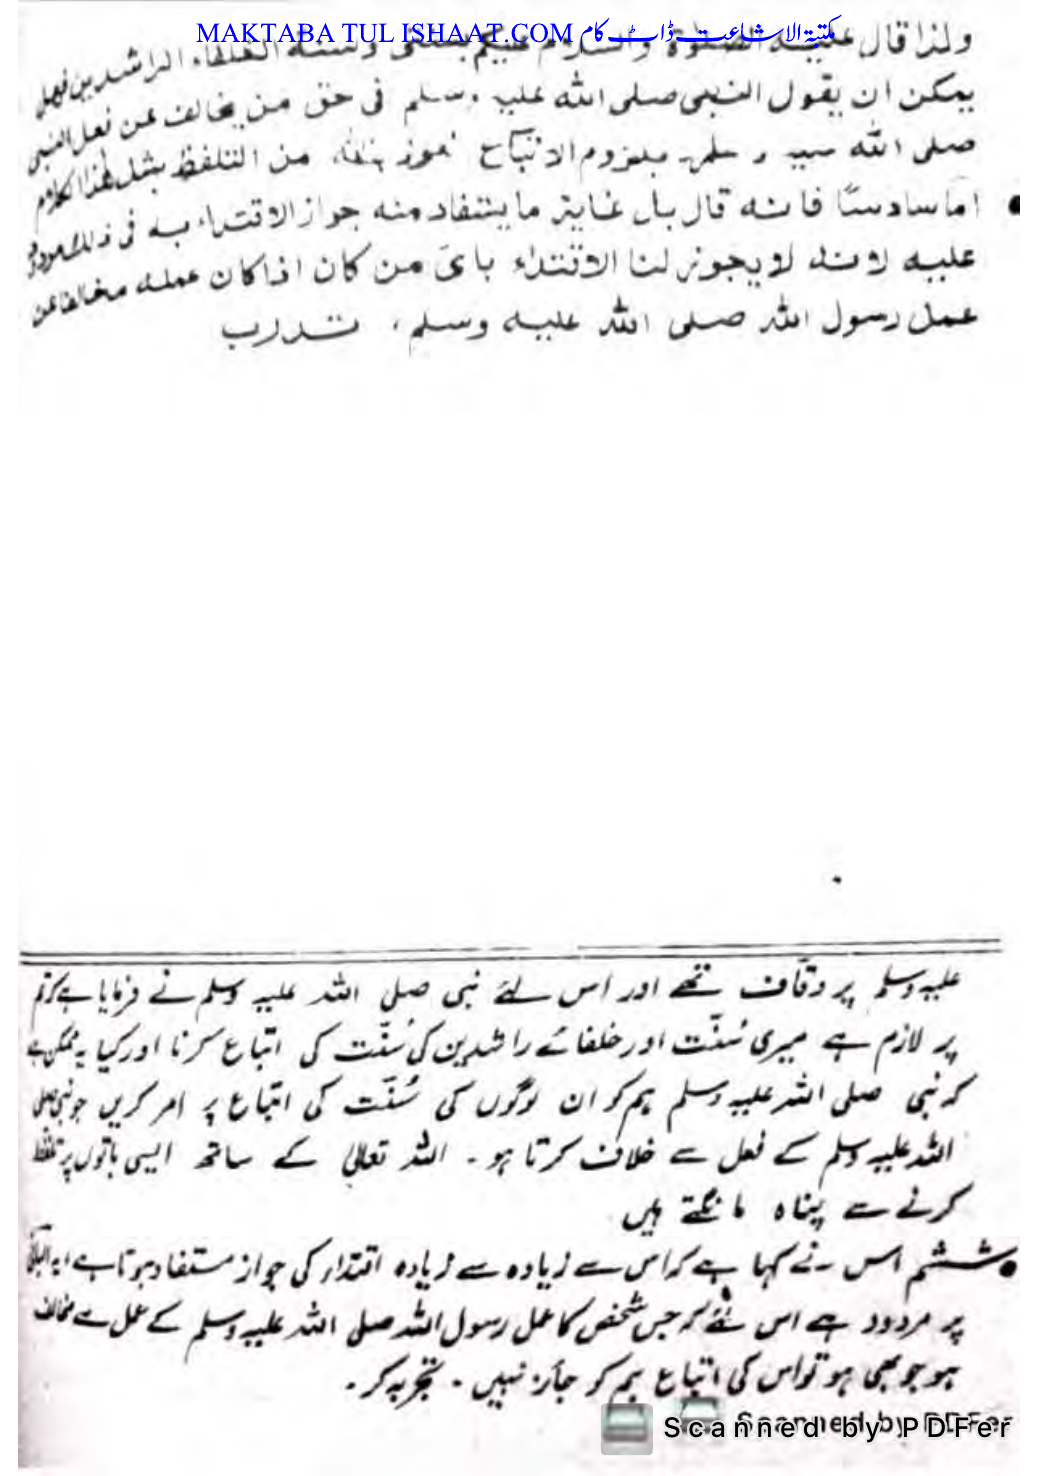 MAKTABA TUL ISHAAT.COM مكتبة الاشاعت ڈاٹ کام
ولذا قال عليه الصلوة والسلام عليكم بسنتى وسنة الخلفاء الراشدين فهل
يمكن ان يقول النبى صلى الله عليه وسلم فى حق من يخالف عن فعل النبى
صلى الله عليه وسلم بلزوم الاتباع نعوذ بالله من التلفظ بمثل هذا الكلام
● اما سادسًا فانه قال بل غاية ما يستفاد منه جواز الاقتداء به فى ذلك مردود
عليه لانه لا يجوز لنا الاقتداء باى من كان اذا كان عمله مخالفا عن
عمل رسول الله صلى الله عليه وسلم، تدرب
علیہ وسلم پر وقّاف تھے اور اس لئے نبی صلی اللہ علیہ وسلم نے فرمایا ہے کہ تم
پر لازم ہے میری سُنّت اور خلفائے راشدین کی سُنّت کی اتباع کرنا اور کیا یہ ممکن ہے
کہ نبی صلی اللہ علیہ وسلم ہم کو ان لوگوں کی سُنّت کی اتباع پر امر کریں جو نبی صلی
اللہ علیہ وسلم کے فعل سے خلاف کرتا ہو۔ اللہ تعالیٰ کے ساتھ ایسی باتوں پر تلفظ
کرنے سے پناہ مانگتے ہیں
● ششم اس نے کہا ہے کہ اس سے زیادہ سے زیادہ اقتداء کی جواز مستفاد ہوتا ہے
پر مردود ہے اس لئے کہ جس شخص کا عمل رسول اللہ صلی اللہ علیہ وسلم کے عمل سے مخالف
ہو جو بھی ہو تو اس کی اتباع ہم کو جائز نہیں ۔ تجربہ کر ۔
Scanned by PDFer